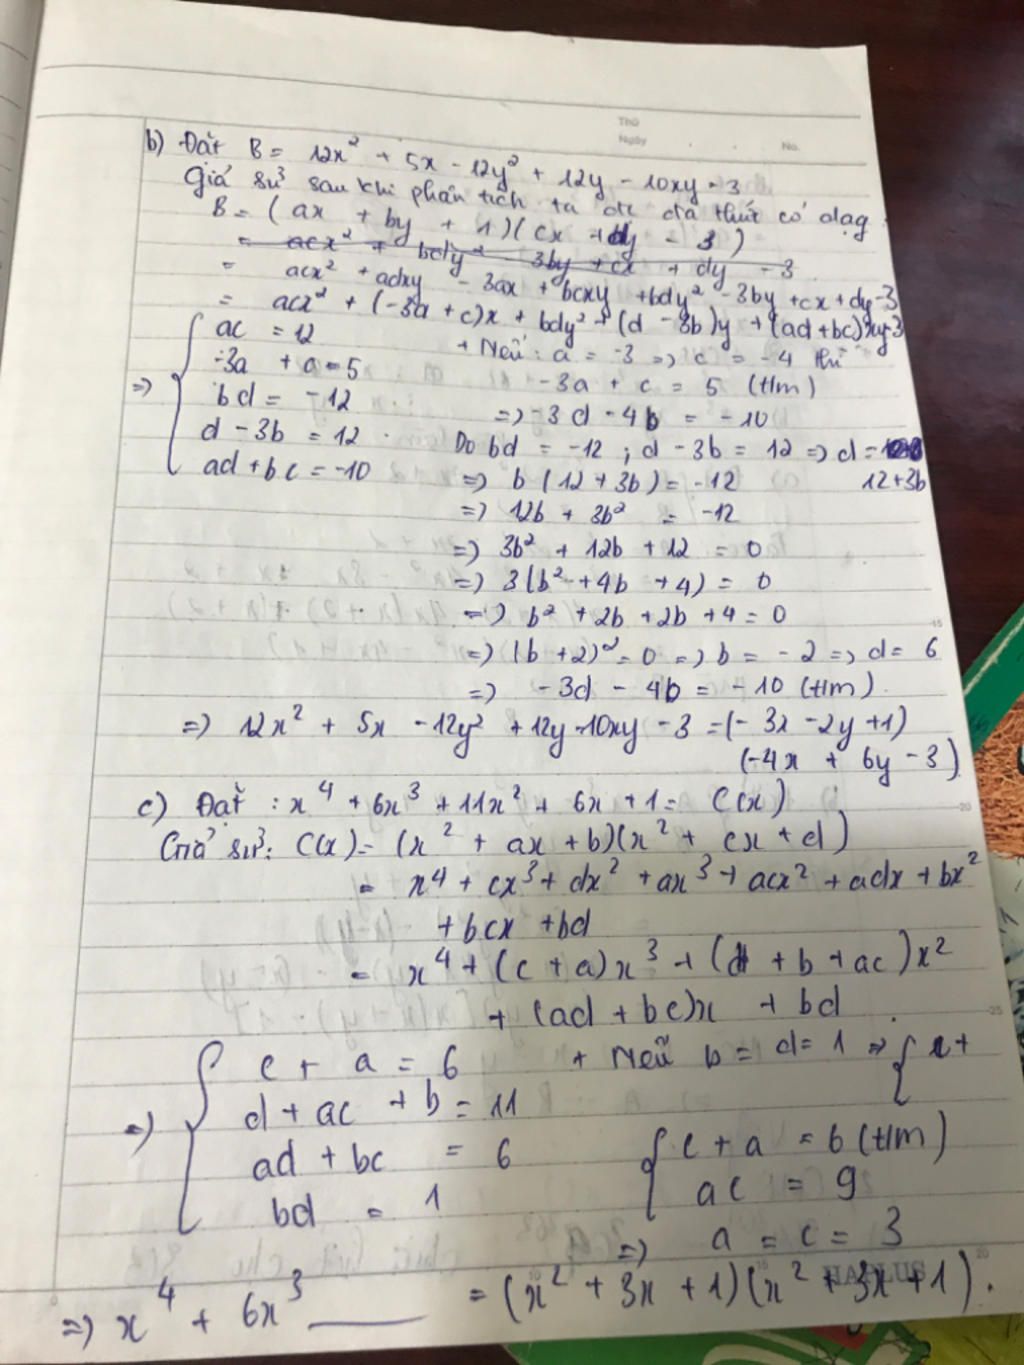 Thứ
Ngày
No.
b) Đặt B = 12x² + 5x - 12y² + 12y - 10xy - 3
Giả sử sau khi phân tích ta đc đa thức có dạng
B = (ax + by + 1)(cx + dy - 3)
= acx² + bdy² - 3by + cx + dy - 3
= acx² + adxy - 3ax + bcxy + bdy² - 3by + cx + dy - 3
= acx² + (-3a + c)x + bdy² + (d - 3b)y + (ad + bc)xy - 3
=> { ac = 12
-3a + a = 5
bd = -12
d - 3b = 12
ad + bc = -10
+ Nếu : a = -3 => c = -4 thì
-3a + c = 5 (t/m)
=> -3d - 4b = -10
Do bd = -12 ; d - 3b = 12 => d =
12 + 3b
=> b(12 + 3b) = -12
=> 12b + 3b² = -12
=> 3b² + 12b + 12 = 0
=> 3(b² + 4b + 4) = 0
=> b² + 2b + 2b + 4 = 0
=> (b + 2)² = 0 => b = -2 => d = 6
=> -3d - 4b = -10 (t/m)
=> 12x² + 5x - 12y² + 12y - 10xy - 3 = (-3x - 2y + 1)
(-4x + 6y - 3)
c) Đặt : x⁴ + 6x³ + 11x² + 6x + 1 = C(x)
Giả sử: C(x) = (x² + ax + b)(x² + cx + d)
= x⁴ + cx³ + dx² + ax³ + acx² + adx + bx²
+ bcx + bd
= x⁴ + (c + a)x³ + (d + b + ac)x²
+ (ad + bc)x + bd
=> { c + a = 6
d + ac + b = 11
ad + bc = 6
bd = 1
+ Nếu b = d = 1 => {
{ c + a = 6 (t/m)
ac = 9
=> a = c = 3
HAPLUS
=> x⁴ + 6x³ ____ = (x² + 3x + 1)(x² + 3x + 1).